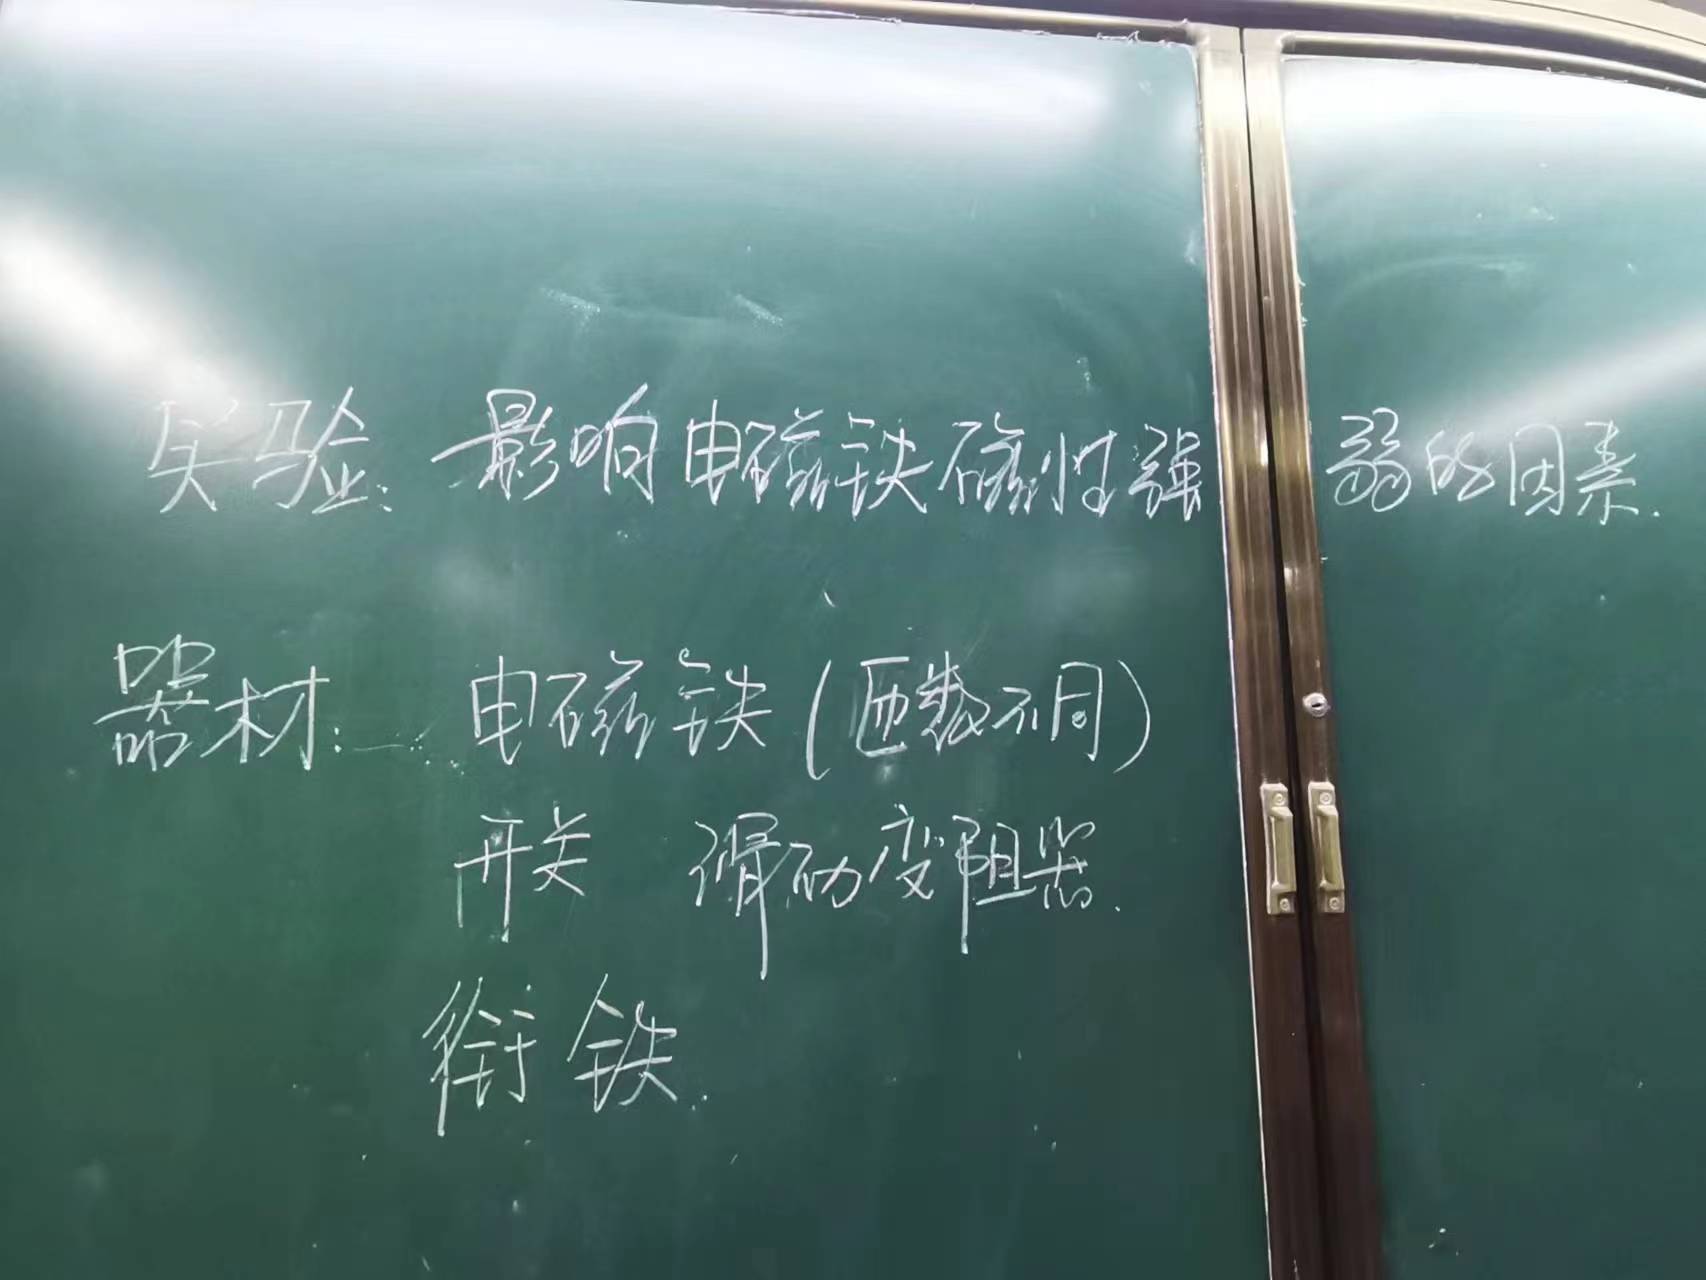 实验: 影响电磁铁磁性强弱的因素.
器材: 电磁铁(匝数不同)
开关 滑动变阻器.
衔铁.